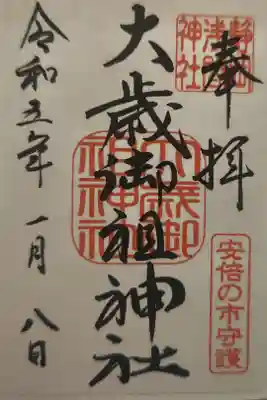 奉拝
静岡浅間神社
安倍の市守護
大歳御祖神社
大歳御祖神社
令和五年一月八日